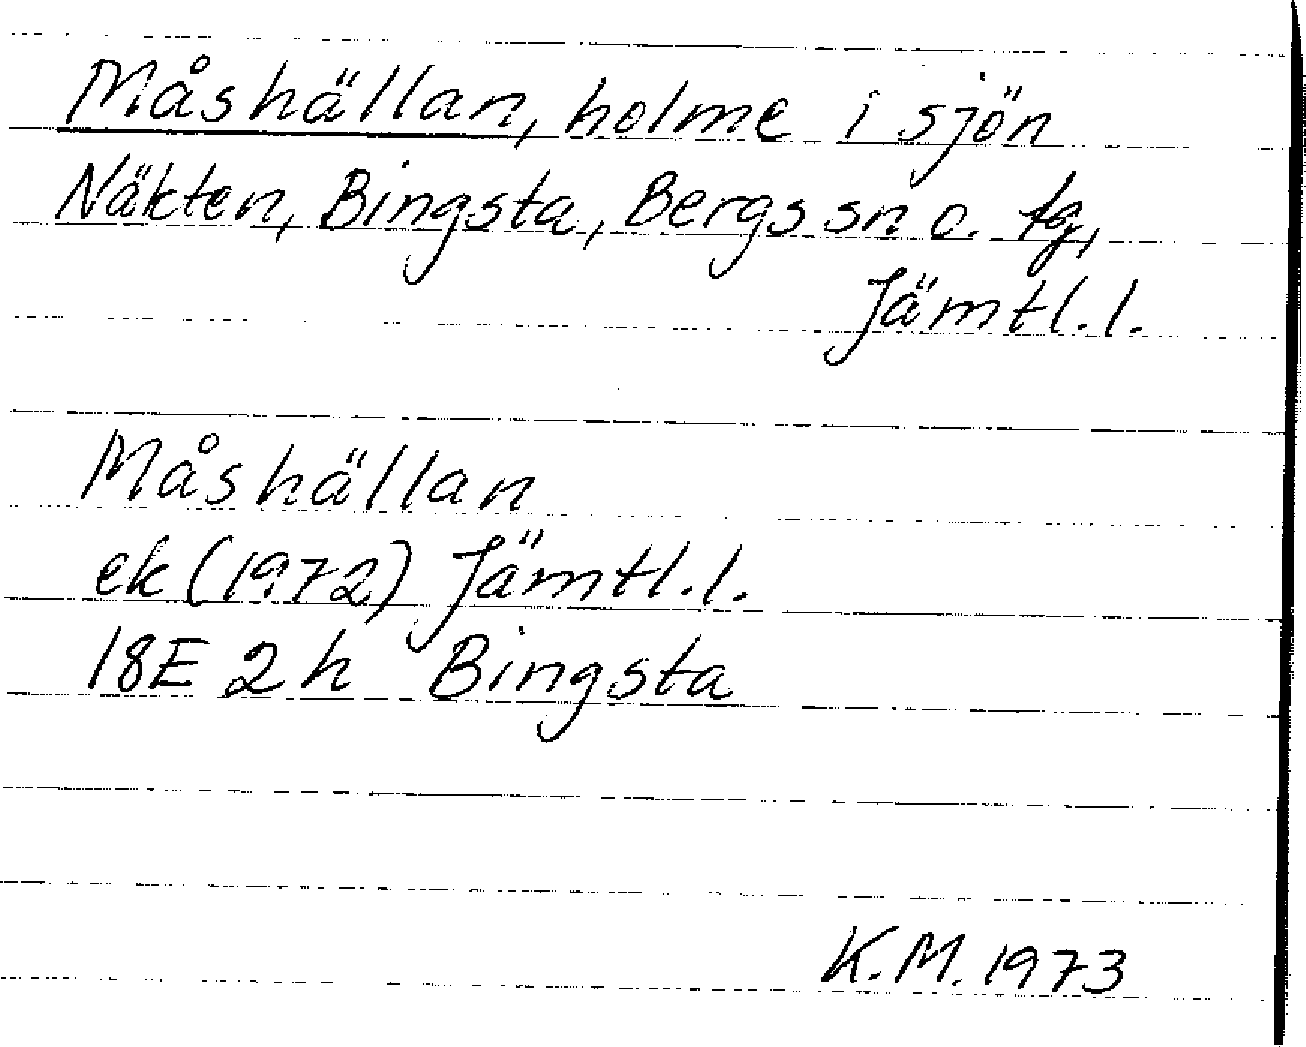 Måshällan, holme i sjön
Näkten, Bingsta, Bergs sn o. tg,
Jämtl.l.
Måshällan
ek (1972) Jämtl.l.
18E 2h Bingsta
K.M. 1973